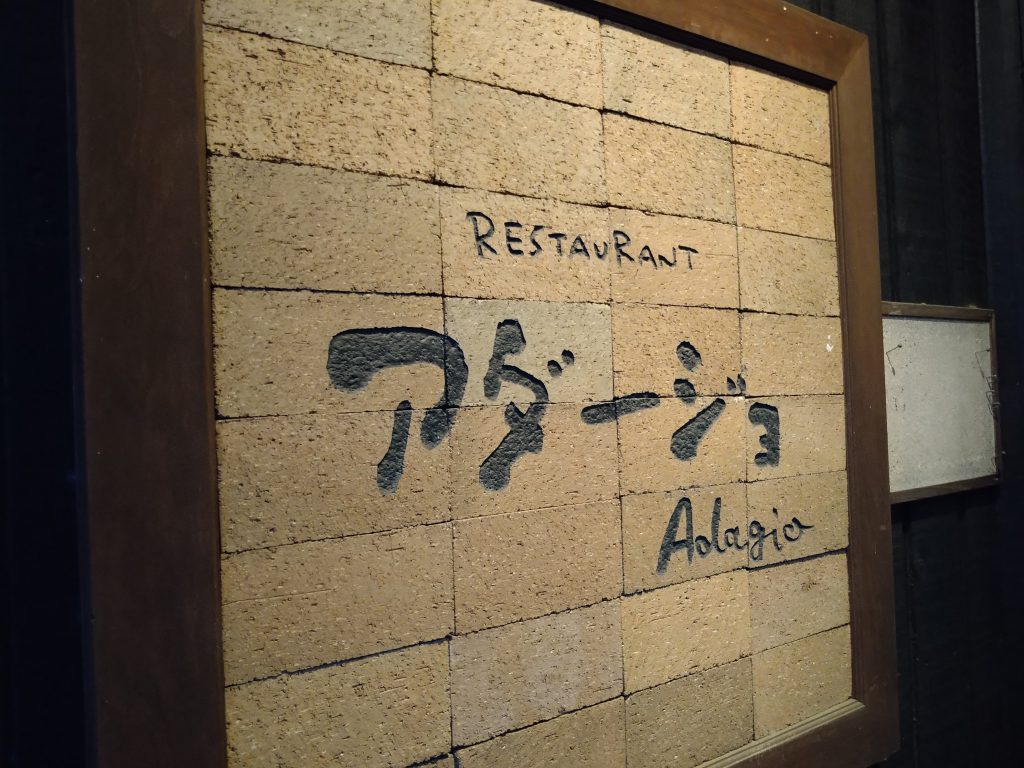 RESTAURANT
アダージョ
Adagio